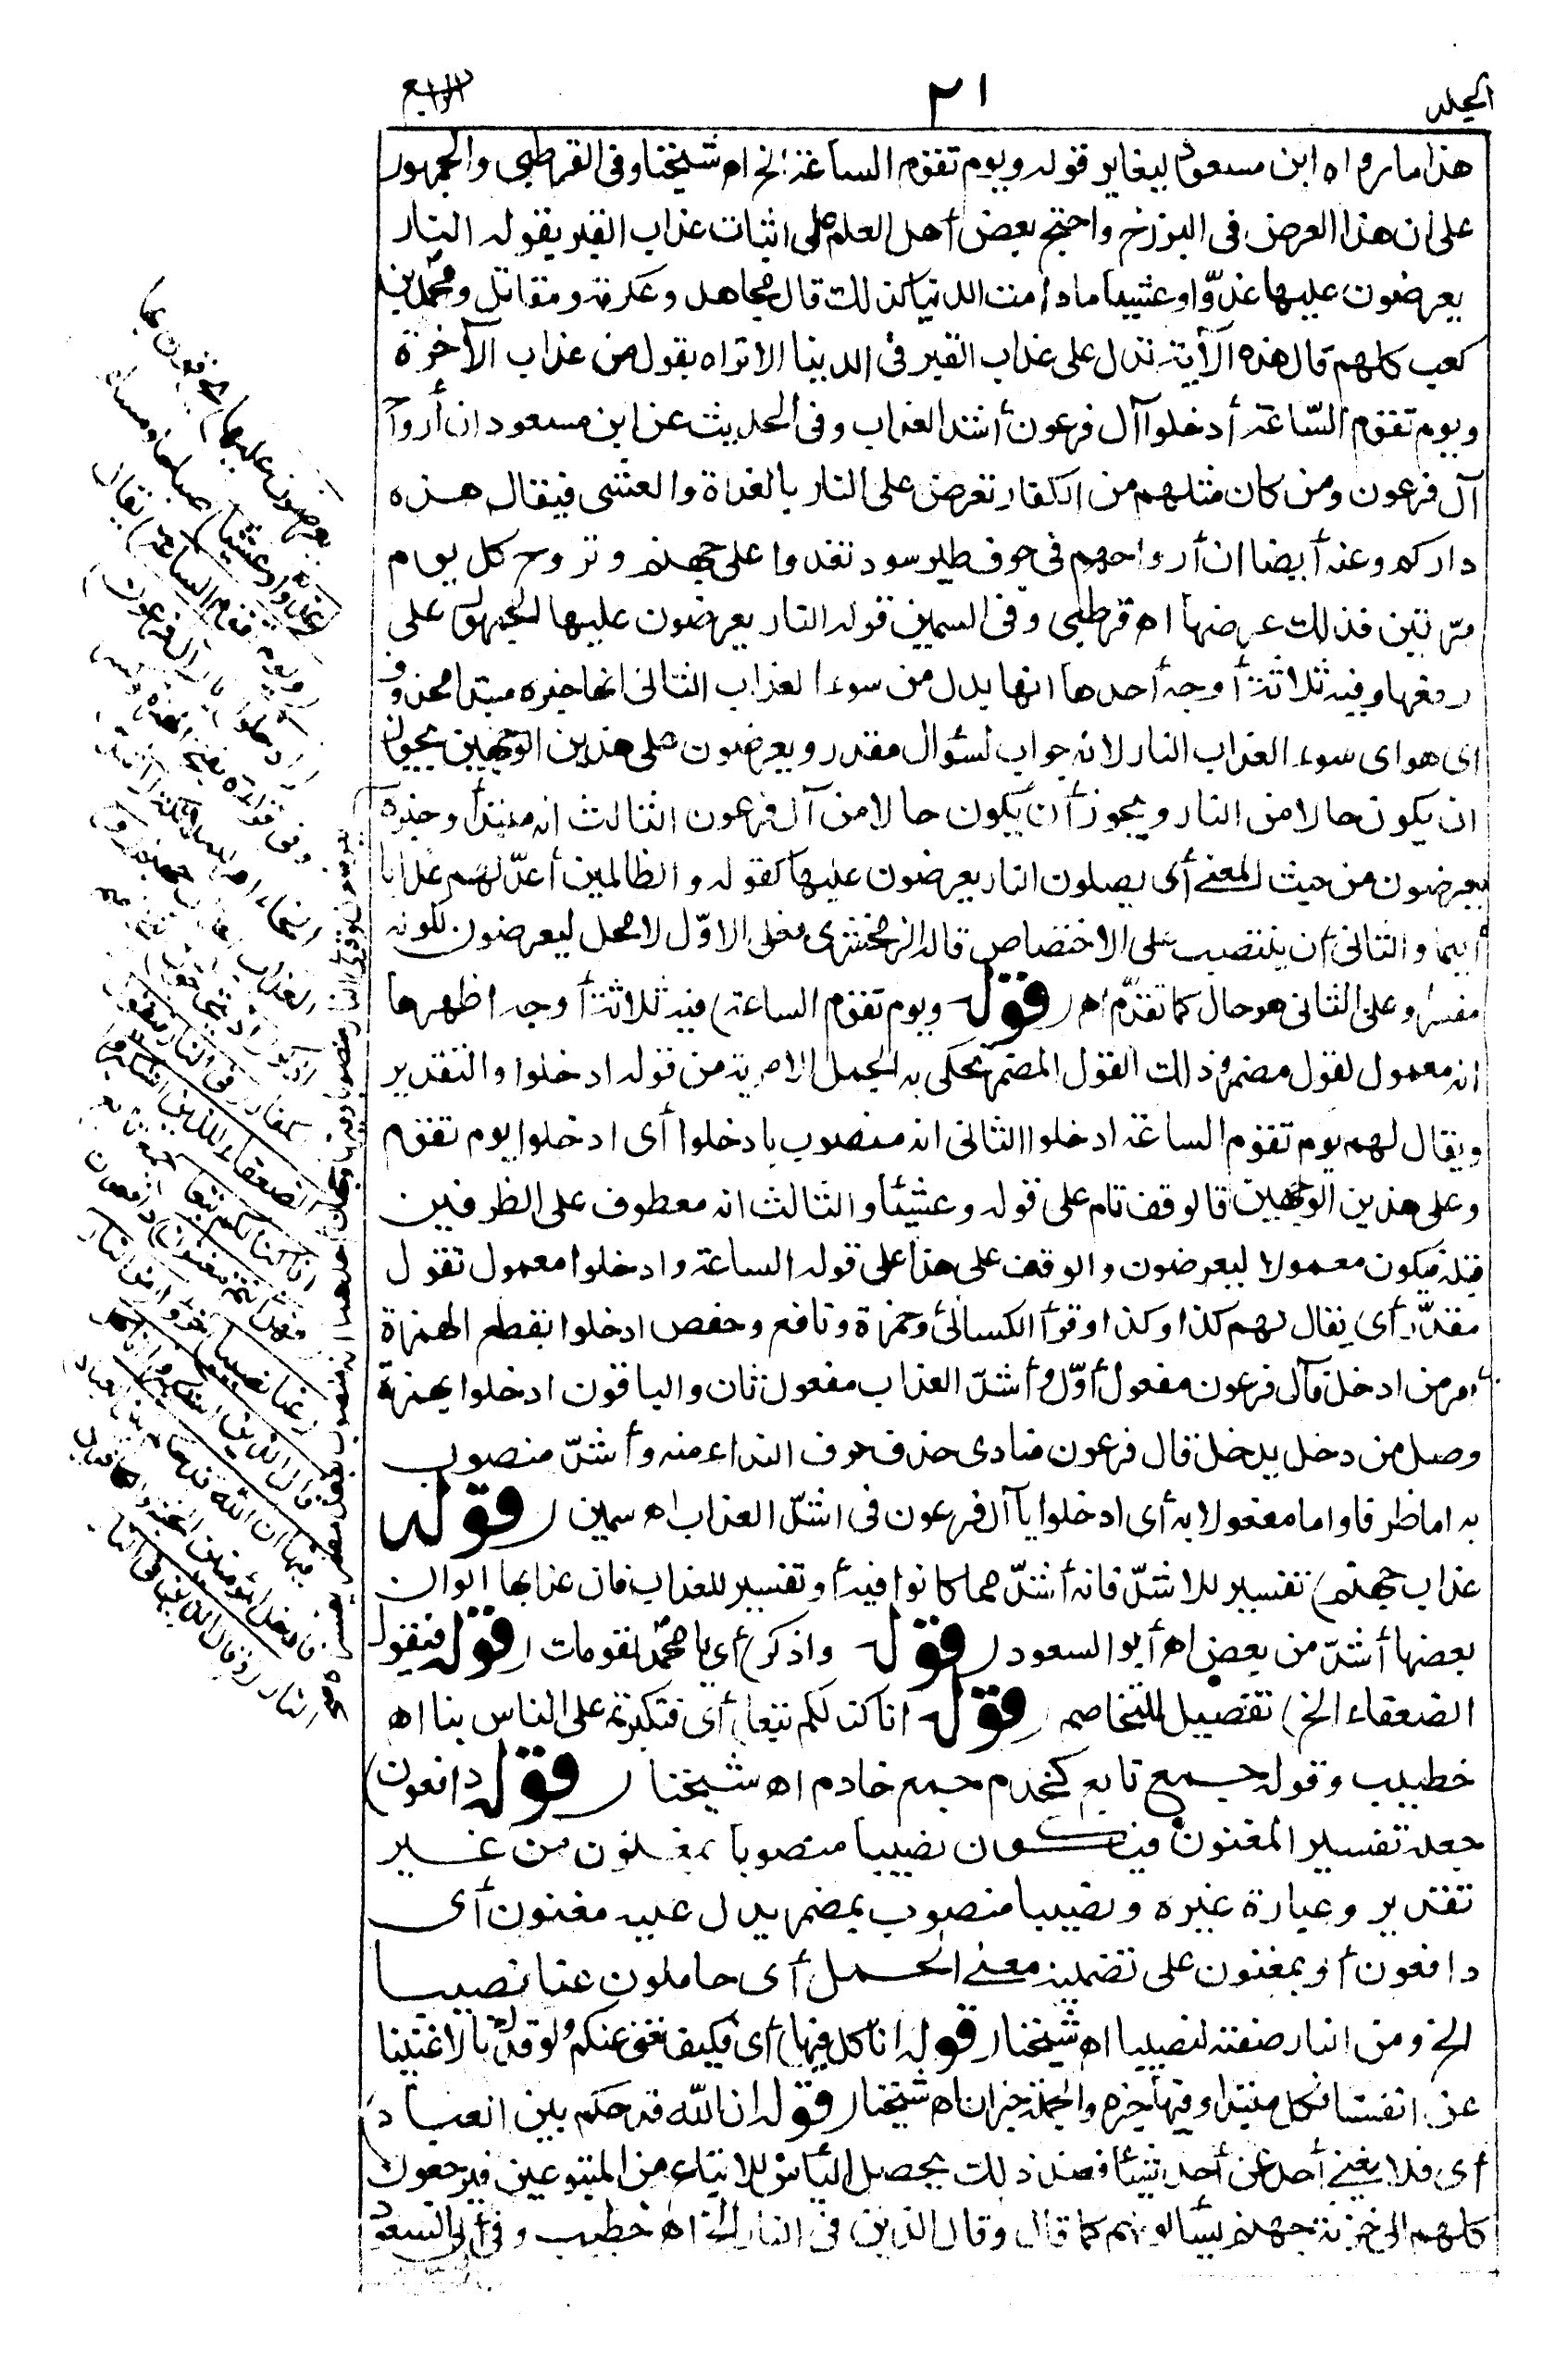 الجلد
٢١
الرابع
هذا ما رواه ابن مسعود ليغاير قوله ويوم تقوم الساعة الخ اه شيخنا وفى القرطبى والجمهور
على أن هذا العرض فى البرزخ واحتج بعض أهل العلم على اثبات عذاب القبر بقوله النار
يعرضون عليها غدوّا وعشيا ما دامت الدنيا كذلك قال مجاهد وعكرمة ومقاتل ومحمد بن
كعب كلهم قال هذه الآية تدل على عذاب القبر فى الدنيا الا تراه يقول من عذاب الآخرة
ويوم تقوم السّاعة أدخلوا آل فرعون أشد العذاب وفى الحديث عن ابن مسعود ان أرواح
آل فرعون ومن كان مثلهم من الكفار تعرض على النار بالغداة والعشى فيقال هذه
داركم وعنه أيضا ان أرواحهم فى جوف طير سود تغدوا على جهنم وتروح كل يوم
مرّتين فذلك عرضها اه قرطبى وفى السمين قوله النار يعرضون عليها الجمهور على
رفعها وفيه ثلاثة أوجه أحدها انها بدل من سوء العذاب الثانى انها خبره مبتدا محذوف
اى هو اى سوء العذاب النار لانه جواب لسؤال مقدر ويعرضون على هذين الوجهين يجوز
ان يكون حالا من النار ويجوز أن يكون حالا من آل فرعون الثالث انه مبتدأ وخبره
يعرضون من حيث المعنى أى يصلون النار يعرضون عليها كقوله والظالمين أعدّ لهم عذابا
أليما والثانى أن ينتصب على الاختصاص قاله الزمخشرى فعلى الاوّل لا محل ليعرضون لكونه
مفسرا وعلى الثانى هو حال كما تقدّم اه (قوله ويوم تقوم الساعة) فيه ثلاثة أوجه اظهرها
انه معمول لقول مضمر وذلك القول المضمر محكى به الجمل الامرية من قوله ادخلوا والتقدير
ويقال لهم يوم تقوم الساعة ادخلوا الثانى انه منصوب بادخلوا أى ادخلوا يوم تقوم
وعلى هذين الوجهين فالوقف تام على قوله وعشيا والثالث انه معطوف على الظرفين
قبله فيكون معمولا ليعرضون والوقف على هذا على قوله الساعة وادخلوا معمول لقول
مقدّر أى يقال لهم كذا وكذا وقرأ الكسائى وحمزة ونافع وحفص ادخلوا بقطع الهمزة
أمر من ادخل فآل فرعون مفعول أوّل وأشدّ العذاب مفعول ثان والباقون ادخلوا بهمزة
وصل من دخل يدخل فال فرعون منادى حذف حرف النداء منه وأشدّ منصوب
به اما ظرفا واما مفعولا به أى ادخلوا يا آل فرعون فى اشدّ العذاب اه سمين (قوله
عذاب جهنم) تفسير للاشدّ فانه أشدّ مما كانوا فيه أو تفسير للعذاب فان عذابها الوان
بعضها أشدّ من بعض اه أبو السعود (قوله واذكر) أى يا محمد لقومك (قوله فيقول
الضعفاء الخ) تفصيل للتخاصم (قوله انا كنا لكم تبعا) أى فتكبرتم على الناس بنا اه
خطيب وقوله جمع تابع كخدم جمع خادم اه شيخنا (قوله دافعون)
جعله تفسير المغنون فيكون نصيبا منصوبا بمغنون من غير
تقدير وعبارة غيره ونصيبا منصوب بمضمر يدل عليه مغنون أى
دافعون أو بمغنون على تضمينه معنى الحمل أى حاملون عنا نصيبا
الخ ومن النار صفة لنصيبا اه شيخنا (قوله انا كل فيها) أى فكيف نغنى عنكم ولو قدرنا لاغنينا
عن انفسنا فكل مبتدا وفيها خبره والجملة خبر ان اه شيخنا (قوله ان الله قد حكم بين العباد)
أى فلا يغنى أحد عن أحد شيئا فعند ذلك يحصل اليأس للاتباع من المتبوعين فيرجعون
كلهم الى خزنة جهنم يسألونهم كما قال وقال الذين فى النار الخ اه خطيب وفى أبى السعود
يعرضون عليها)
غدوا وعشيا) صباحا ومساء
(ويوم تقوم الساعة) يقال
(ادخلوا) يا (آل فرعون)
العذاب) عذاب جهنم (و)
الضعفاء للذين استكبروا
انا كنا لكم تبعا) جمع تابع
(فهل أنتم مغنون) دافعون
(عنا نصيبا) جزءا (من النار
قال الذين استكبروا انا كل
فيها ان الله قد حكم بين العباد)
فادخل المؤمنين الجنة والكافرين
النار (وقال الذين فى النار